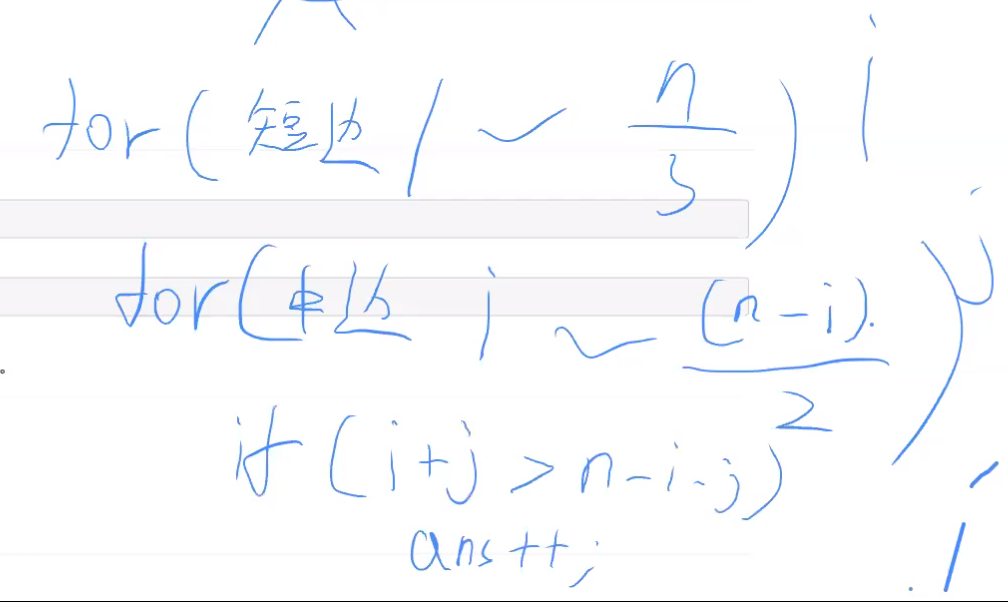 for(短边 1 ~ n/3) i
for(中边 i ~ (n-i)/2) j
if (i+j > n-i-j)
ans++;